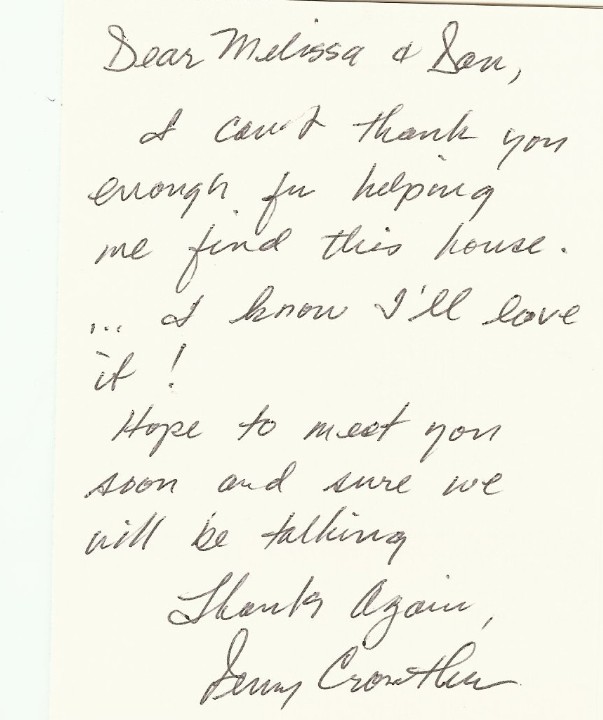 Dear Melissa & Don,
I can't thank you
enough for helping
me find this house.
... I know I'll love
it!
Hope to meet you
soon and sure we
will be talking
Thanks Again,
Crowther